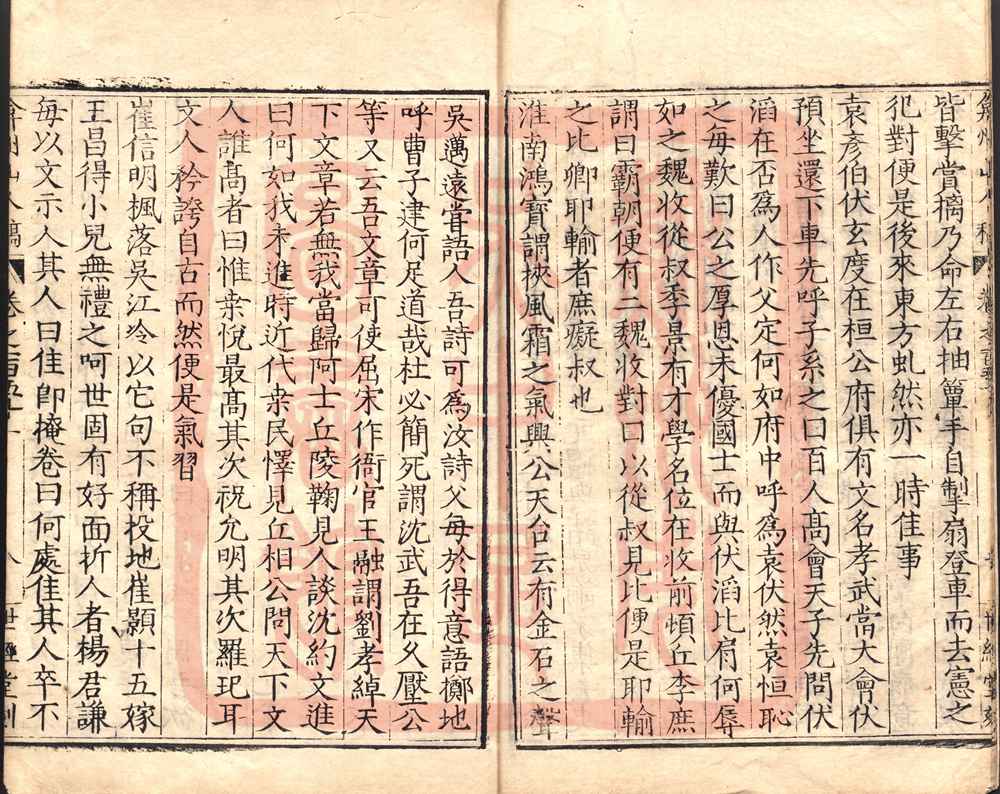 皆擊賞擒乃命左右抽簟手自掣扇登車而去憲之
犯對便是後來東方虬然亦一時佳事
袁彥伯伏玄度在桓公府俱有文名孝武嘗大會伏
預坐還下車先呼子系之曰百人高會天子先問伏
滔在否為人作父定何如府中呼為袁伏然袁恒恥
之每歎曰公之厚恩未優國士而與伏滔比肩何辱
如之魏收從叔季景有才學名位在收前頓丘李庶
謂曰霸朝便有二魏收對曰以從叔見比便是耶輸
之比卿耶輸者庶癡叔也
淮南鴻寶謂挾風霜之氣興公天台云有金石之聲
吳邁遠嘗語人吾詩可為汝詩父每於得意語擲地
呼曹子建何足道哉杜必簡死謂沈武吾在久壓公
等又云吾文章可使屈宋作衙官王融謂劉孝綽天
下文章若無我當歸阿士丘陵鞠見人談沈約文進
曰何如我未進時近代桒民懌見丘相公問天下文
人誰高者曰惟桒悅最高其次祝允明其次羅玘耳
文人矜誇自古而然便是氣習
崔信明楓落吳江冷以它句不稱投地崔顥十五嫁
王昌得小兒無禮之呵世固有好面折人者楊君謙
每以文示人其人曰佳即掩卷曰何處佳其人卒不
卷之百五十 八 世經堂刻